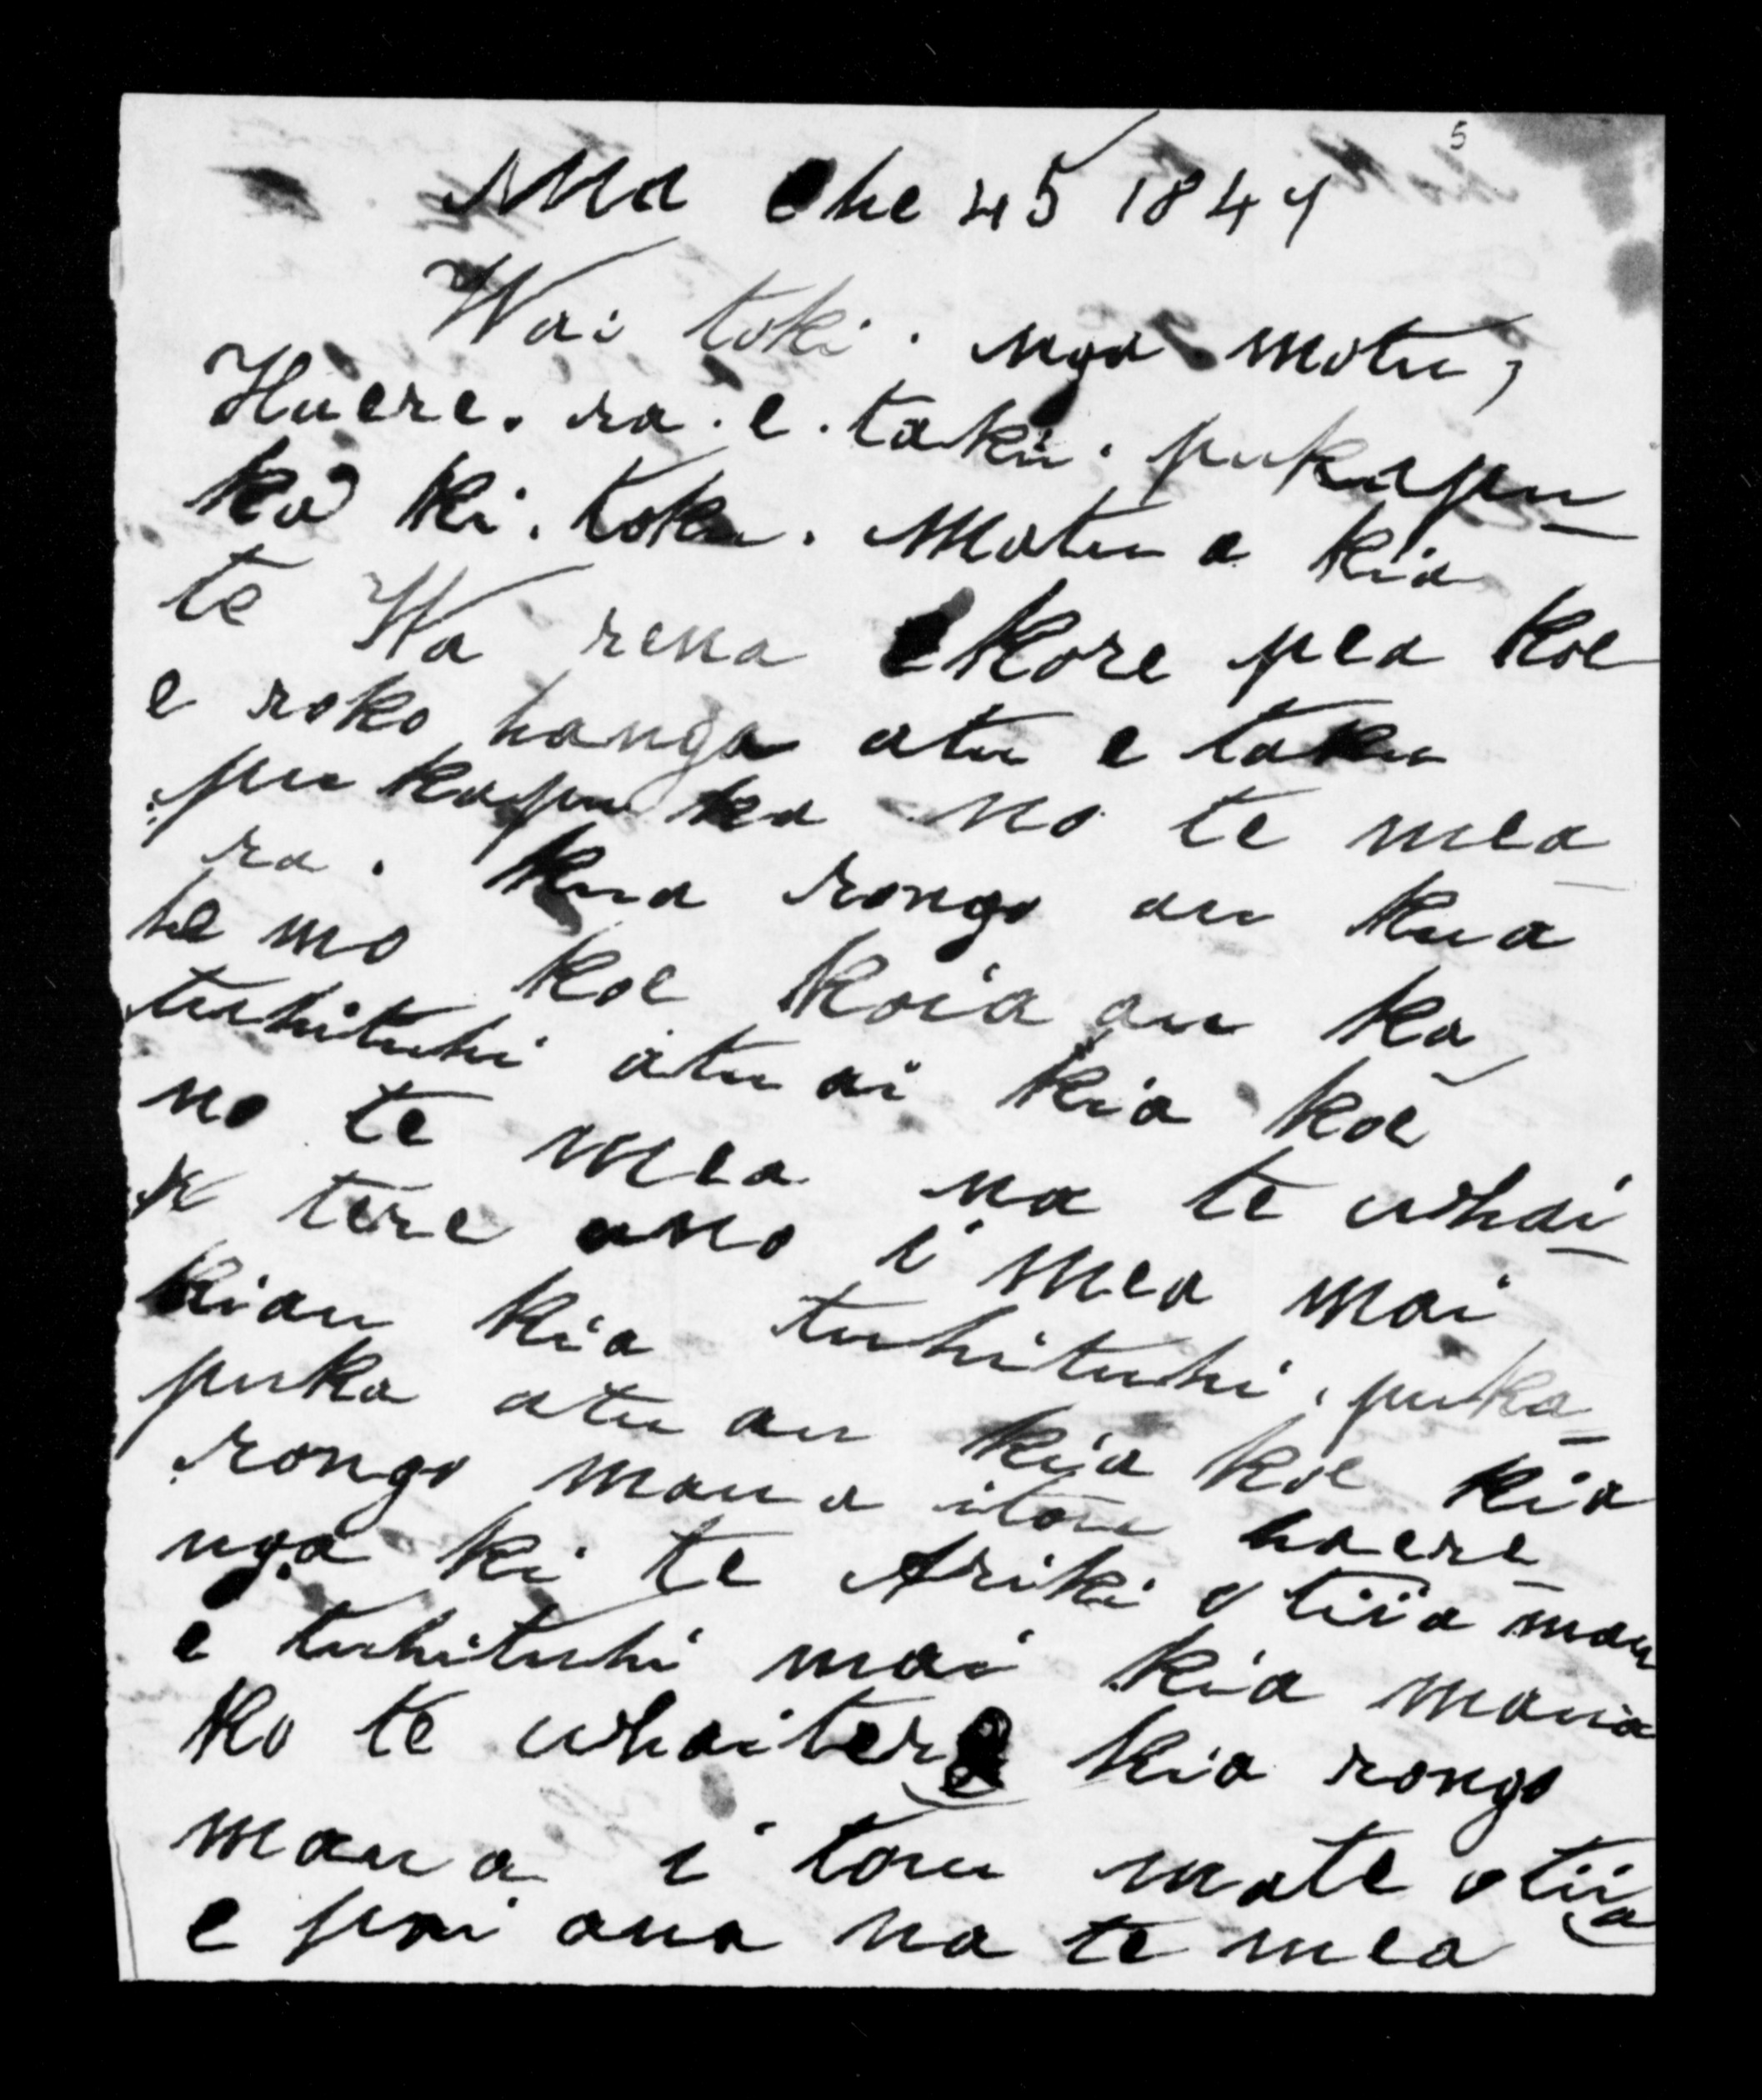 5
Ma ehe 45 1847
Wai toki . nga motu,
Huere . ra . e . taku . pukapu_
ka ki . toku . Matua kia
te Wa rena ekore pea koe
e roko hanga atu e taku
pukapuka no te mea
ra . kua rongo au kua
he mo koe koia au ka
tuhituhi atu ai kia koe
no te mea na te whai_
tere ano i mea mai
kiau kia tuhituhi . puka_
puka atu au kia koe kia
rongo maua itou haere_
nga ki te Ariki otiia mau
e tuhituhi mai kia maua
ko te whaitere kia rongo
maua i tou mate otiia
e pai ana na te mea